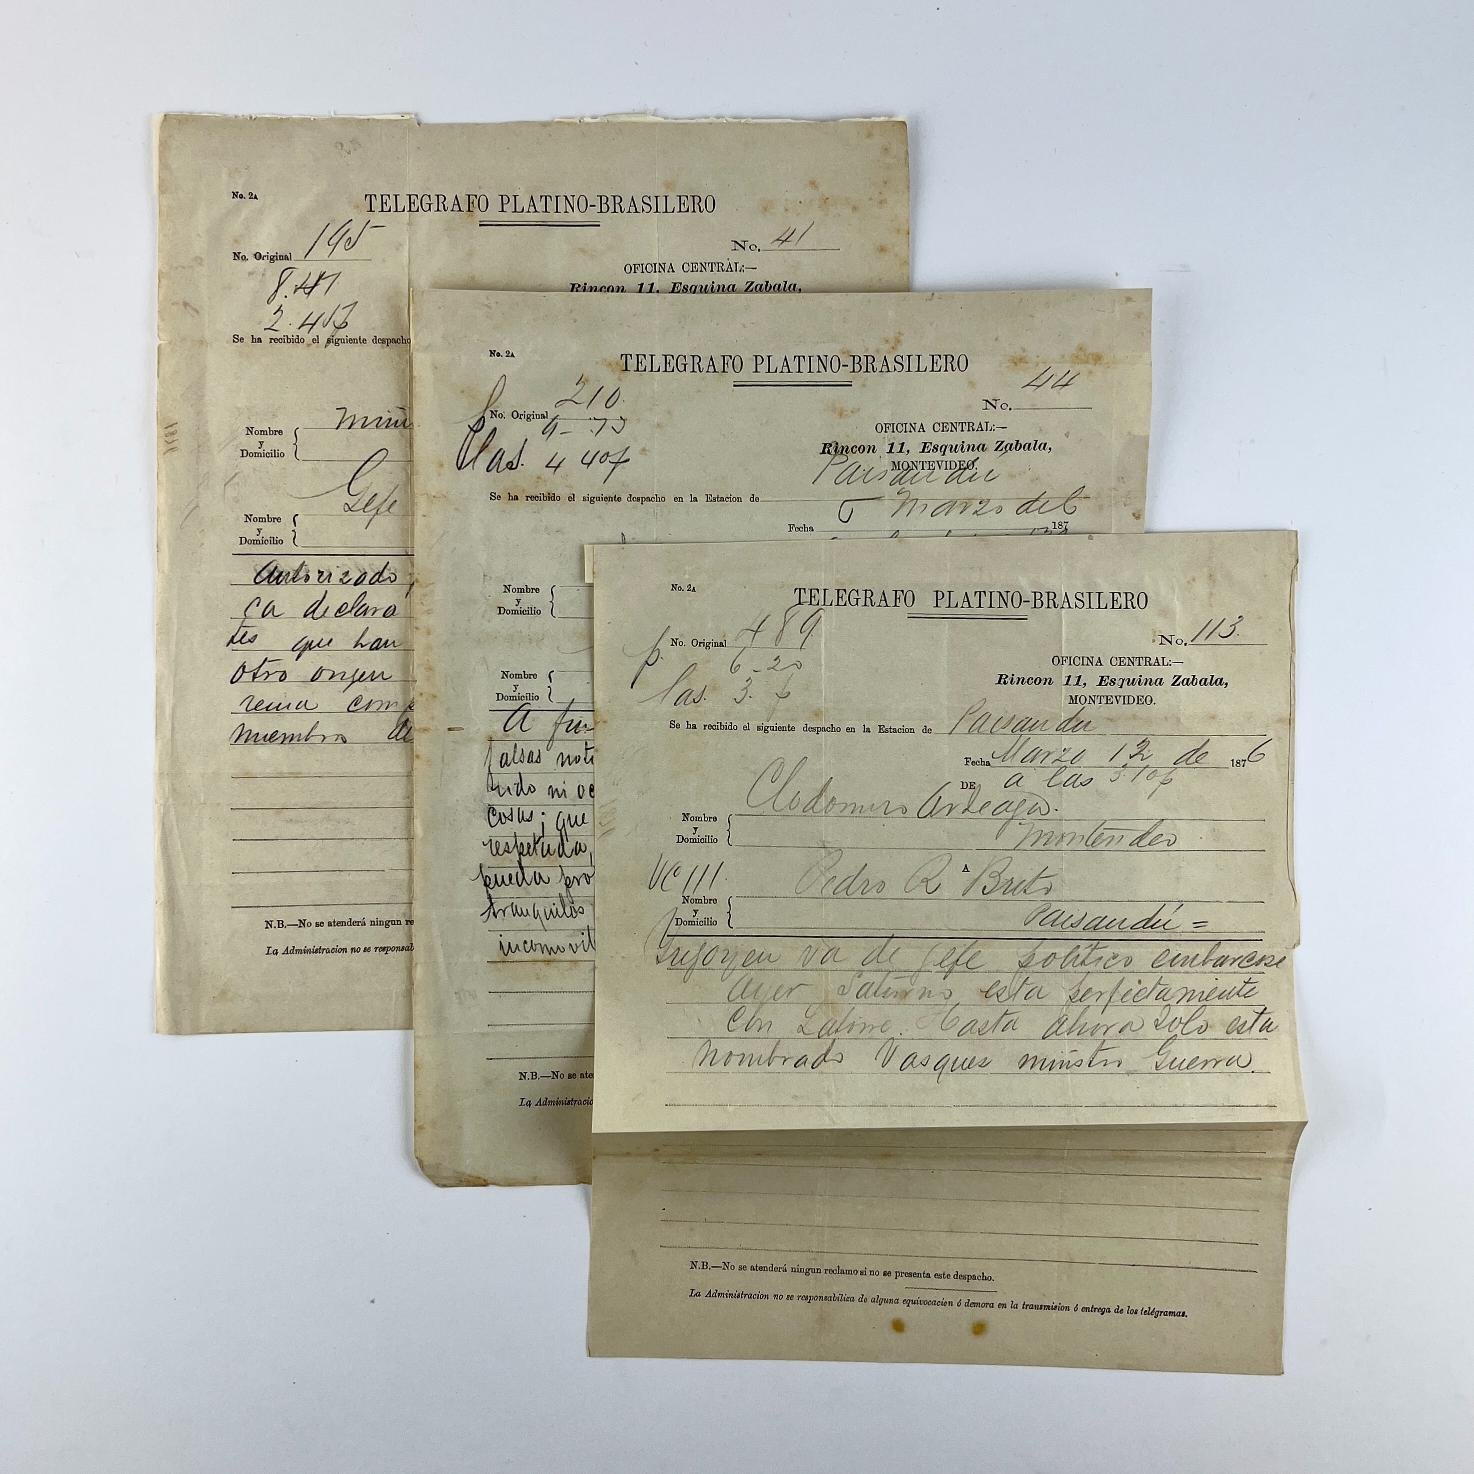 No. 2A
TELEGRAFO PLATINO-BRASILERO
No. Original 195
No. 41
8.
2.
OFICINA CENTRAL:—
Rincon 11, Esquina Zabala,
Se ha recibido el siguiente despacho
Nombre
y
Domicilio
Gefe
Nombre
y
Domicilio
Autorizado
ca declara
tes que han
otro origen
rema comp
miembro de
N.B.—No se atenderá ningun re
La Administracion no se responsab
No. 2A
TELEGRAFO PLATINO-BRASILERO
No. Original 210
No. 44
9-
las. 4 40
OFICINA CENTRAL:—
Rincon 11, Esquina Zabala,
MONTEVIDEO.
Se ha recibido el siguiente despacho en la Estacion de Paisandú
Fecha Marzo del 6
187
Nombre
y
Domicilio
Nombre
y
Domicilio
A fin
falsas noti
rido ni oc
cosas; que
respetada,
pueda pro
tranquilos
incomovil
N.B.—No se ate
La Administracio
No. 2A
TELEGRAFO PLATINO-BRASILERO
p. No. Original 489
No. 113.
6-20
las. 3. p
OFICINA CENTRAL:—
Rincon 11, Esquina Zabala,
MONTEVIDEO.
Se ha recibido el siguiente despacho en la Estacion de Paisandu
Fecha Marzo 12 de 1876
DE a las 3.10p
Clodomiro Arteaga.
Nombre
y
Domicilio
Montevideo
A
Pedro R Brito
Nombre
y
Domicilio
Paisandú =
Irigoyen va de gefe politico embarcose
Ayer Saturno, esta perfectamente
Con Latorre. Hasta ahora solo esta
Nombrado Vasques ministro Guerra.
N.B.—No se atenderá ningun reclamo si no se presenta este despacho.
La Administracion no se responsabiliza de alguna equivocacion ó demora en la transmision ó entrega de los telégramas.